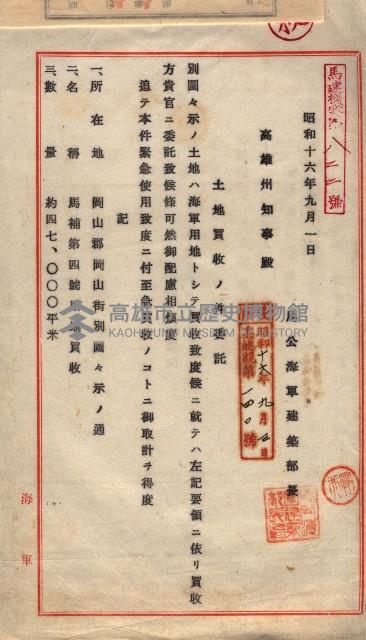 馬建機密第八二二號
昭和十六年九月一日
公海軍建築部長
高雄州知事殿
土地買收ノ件委託
昭和十六年九月五日
一四〇號
別圖々示ノ土地ハ海軍用地トシテ買收致度候ニ就テハ左記要領ニ依リ買收
方貴官ニ委託致候條可然御配慮相煩度
追テ本件緊急使用致度ニ付至急買收ノコトニ御取計ヲ得度
記
一、所在地 岡山郡岡山街別圖々示ノ通
二、名稱 馬補第四號地買收
三、數量 約四七、〇〇〇平米
海軍
高雄市立歷史博物館
KAOHSIUNG MUSEUM OF HISTORY